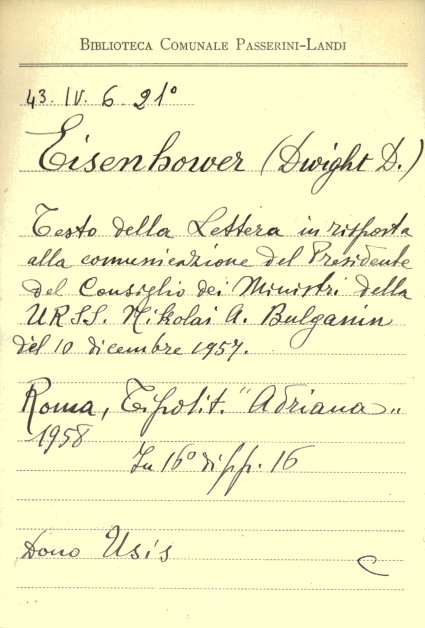 BIBLIOTECA COMUNALE PASSERINI-LANDI
43. IV. 6. 21°
Eisenhower (Dwight D.)
Testo della Lettera in risposta
alla comunicazione del Presidente
del Consiglio dei Ministri della
URSS. Nikolai A. Bulganin
del 10 dicembre 1957.
Roma, Tipolit. "Adriana"
1958
In 16° di pp. 16
Dono Usis
C